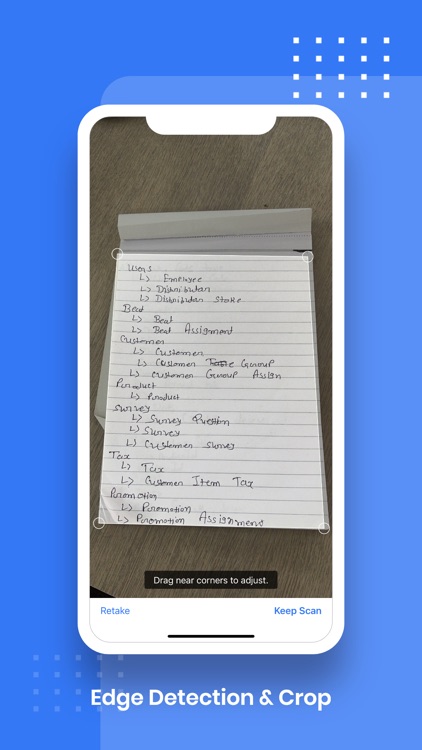 Users
↳ Employee
↳ Distributor
↳ Distributor State
Beat
↳ Beat
↳ Beat Assigment
Customer
↳ Customer
↳ Customer Group
↳ Customer Group Assign
Product
↳ Product
Survey
↳ Survey Question
↳ Survey
↳ Customer Survey
Tax
↳ Tax
↳ Customer Item Tax
Promotion
↳ Promotion
↳ Promotion Assignment
Drag near corners to adjust.
Retake Keep Scan
Edge Detection & Crop